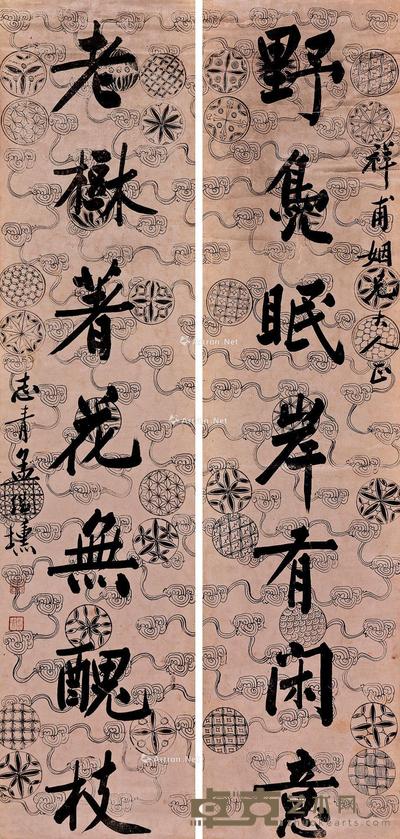 祥甫姻兄大人正
野鳧眠岸有閑意
老樹著花無醜枝
志青孟繼壎
Artron.Net